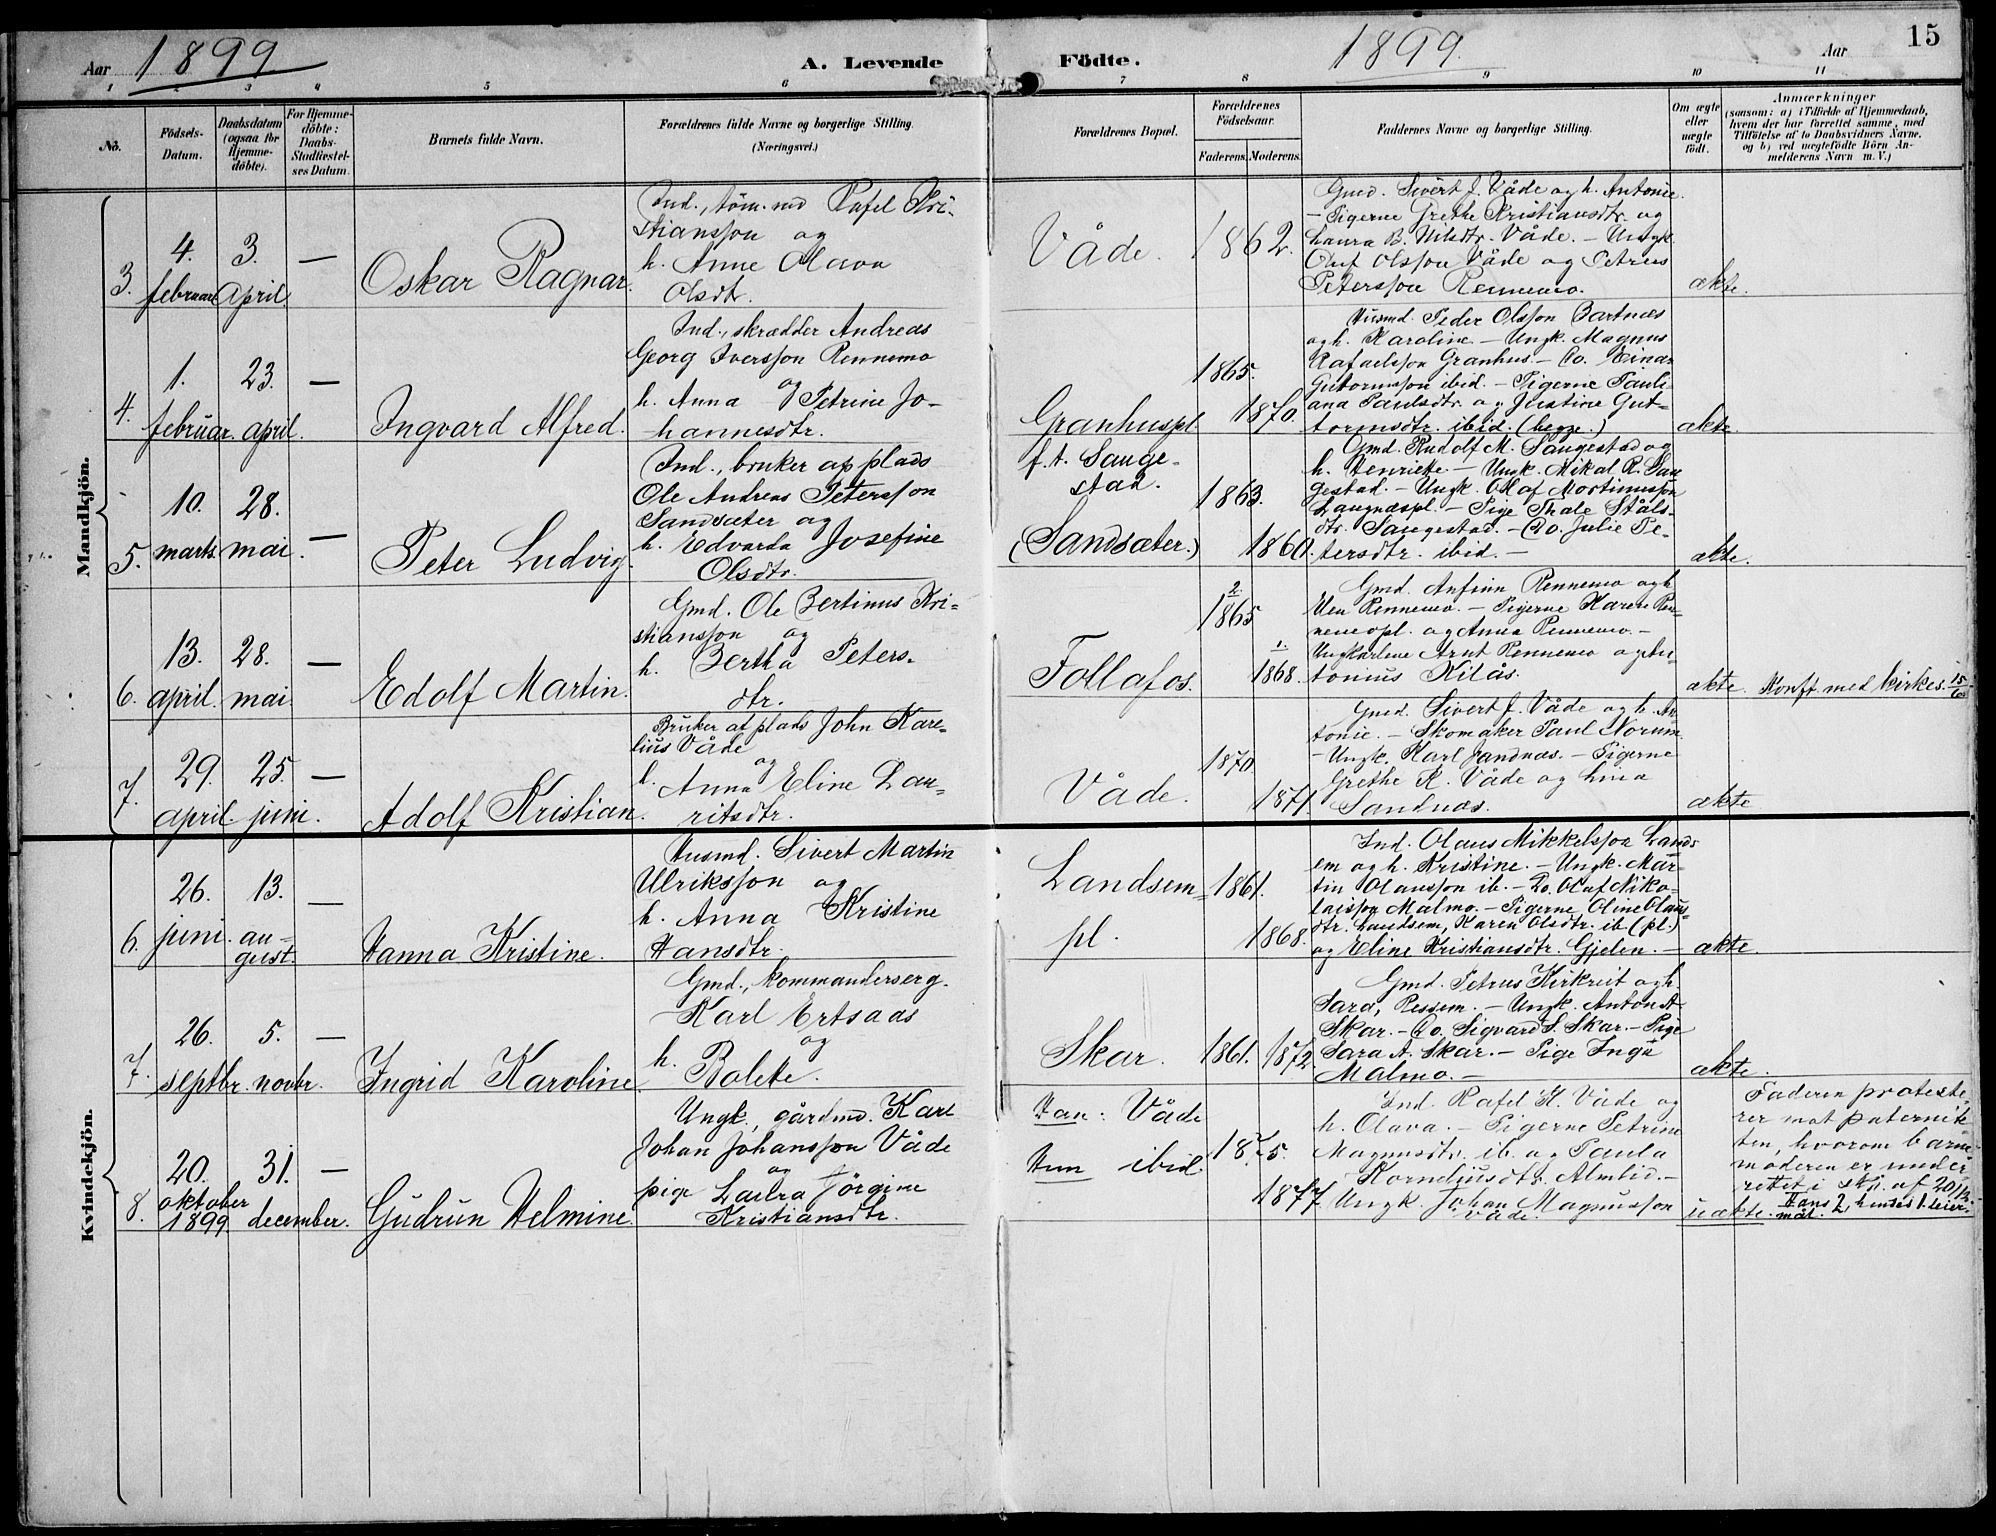 Aar 1899 A. Levende Födte. 1899. Aar 15
1 2 3 4 5 6 7 8 9 10 11
No.
Födsels-Datum.
Daabsdatum (ogsaa for Hjemme-döbte).
For Hjemme-döbte: Daabs-Stadfæstel-ses Datum.
Barnets fulde Navn.
Forældrenes fulde Navne og borgerlige Stilling.
(Næringsvei.)
Forældrenes Bopæl.
Forældrenes Födselsaar.
Faderens. Moderens.
Faddernes Navne og borgerlige Stilling.
Om ægte eller uægte födt.
Anmærkninger
(saasom: a) i Tilfælde af Hjemmedaab,
hvem der har forrettet samme, med
Tilföielse af to Daabsvidners Navne,
og b) ved uægtefödte Börn An-
melderens Navn m. V.)
Mandkjön.
3. 4. februar 3. april. — Oskar Ragnar.
Ind., töm.md Rafel Kri-
stiansson og
h. Anne Olava
Olsdtr.
Våde. 1862.
Gmd. Sivert J. Våde og h. Antonie.
— Pigerne Grethe Kristiansdtr. og
Laura B. Nilsdtr. Våde. — Ungk.
Oluf Olsson Våde og Petrus
Petersson Rennemo.
ækte.
4. 1. februar. 23. april. — Ingvard Alfred.
Ind., skrædder Andreas
Georg Iversson Rennemo
og
h. Anna Petrine Jo-
hannesdtr.
Granhuspl 1865. 1870.
Husmd. Peder Olsson Bartnes
og h. Karoline — Ungk. Magnus
Rafaelsson Granhus. — Do. Einar
Gutormsson ibid. — Pigerne Pauli-
ana Paulsdtr. og Justine Gut-
tormsdtr. ibid. (begge.)
ækte.
5. 10. marts 28. mai. — Peter Ludvig.
Ind., bruker af plads
Ole Andreas Petersson
Sandsæter og
h. Edvarda Josefine
Olsdtr.
f. t. Sauge-
stad.
(Sandsæter.) 1863. 1860.
Gmd. Rudolf M. Saugestad og
h. Henriette — Ungk. Mikal R. Sau
gestad. — Ungk. Olaf Mortinusson
Langnespl — Pige Thale Ståls-
dtr. Saugestad. — Do. Julie Pe-
tersdtr. ibid. —
ækte.
6. 13. april. 28. mai — Edolf Martin.
Gmd. Ole Bertinus Kri-
stiansson og
h. Bertha Peters-
dtr.
Follafos. 2. 1865 1. 1868.
Gmd. Anfinn Rennemo og h
Rennemo. — Pigerne Karen Ren-
nemopl. og Anna Rennemo. —
Ungkarlene Arnt Rennemo og An-
tonius Kilås.
ækte. Konff. med kirkes. 15/6
7. 29. april. 25. juni. — Adolf Kristian.
Bruker af plads John Kare-
lius Våde
og
h. Anna Eline Lau-
ritsdtr.
Våde. 1870 1871.
Gmd. Sivert J. Våde og h. An-
tonie. — Skomaker Paul Norum.
— Ungk. Karl Sandnæs. — Pigerne
Grethe K. Våde og Lina
Sandnæs.
ækte
Kvindekjön.
6. 26. juni. 13. au-
gust. — Hanna Kristine.
Husmd. Sivert Martin
Ulriksson og
h. Anna Kristine
Hansdtr.
Landsem-
pl. 1861. 1868.
Ind. Olaus Mikkelsson Lands
em og h. Kristine. — Ungk. Mar-
tin Olausson ib. — Do. Olaf Niko-
laisson Malmo. — Pigerne Oline Olaus-
dtr. Landsem, Karen Olsdtr. ib (pl.)
og Eline Kristiansdtr. Gjelen. —
ækte.
7. 26. septbr. 5. novbr. — Ingrid Karoline
Gmd., kommanderserg.
Karl Ertsaas
og
h. Bolete.
Skar. 1861. 1872
Gmd. Petrus Kirkreit og h.
Sara, Ressem. — Ungk. Anton A.
Skar. — Do. Sigvard S. Skar. — Pige
Sara A. Skar. — Pige Inga
Malmo. —
ækte.
8. 20. oktober 1899. 31. december. — Gudrun Helmine.
Ungk, gårdmd. Karl
Johan Johansson Våde
og
pige Laura Jörgine
Kristiansdtr.
Han: Våde
Hun ibid. 1875. 1877
Ind. Rafel K. Våde og
h. Olava. — Pigerne Petrine
Magnusdtr. ib. og Paula
Korneliusdtr. Almlid. —
Ungk. Johan Magnusson
Våde.
uækte.
Faderen proteste-
rer mot paternite-
ten, hvorom barne-
moderen er under-
rettet i skr. af 20/12.
Hans 2, hendes 1. leier-
mål.